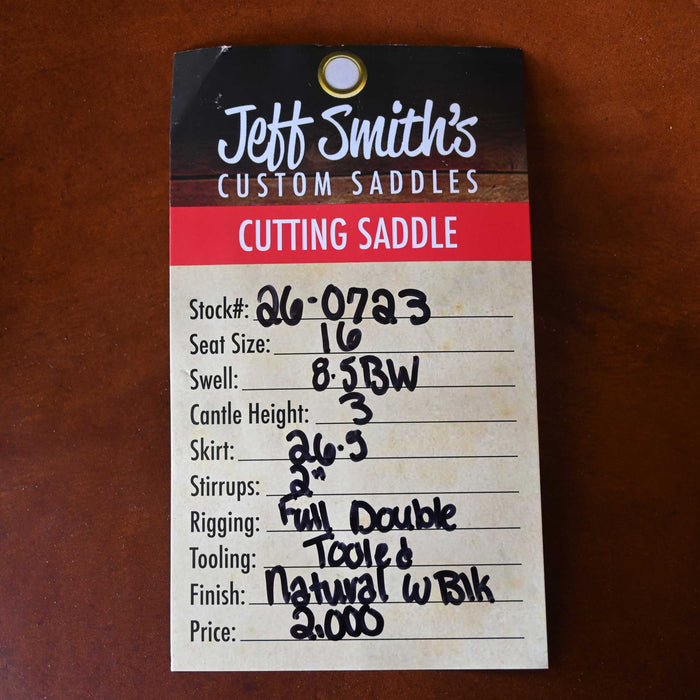 Jeff Smith's
CUSTOM SADDLES
CUTTING SADDLE
Stock#: 26-0723
Seat Size: 16
Swell: 8.5BW
Cantle Height: 3
Skirt: 26.5
Stirrups: 2"
Rigging: Full Double
Tooling: Tooled
Finish: Natural w Blk
Price: 2.000